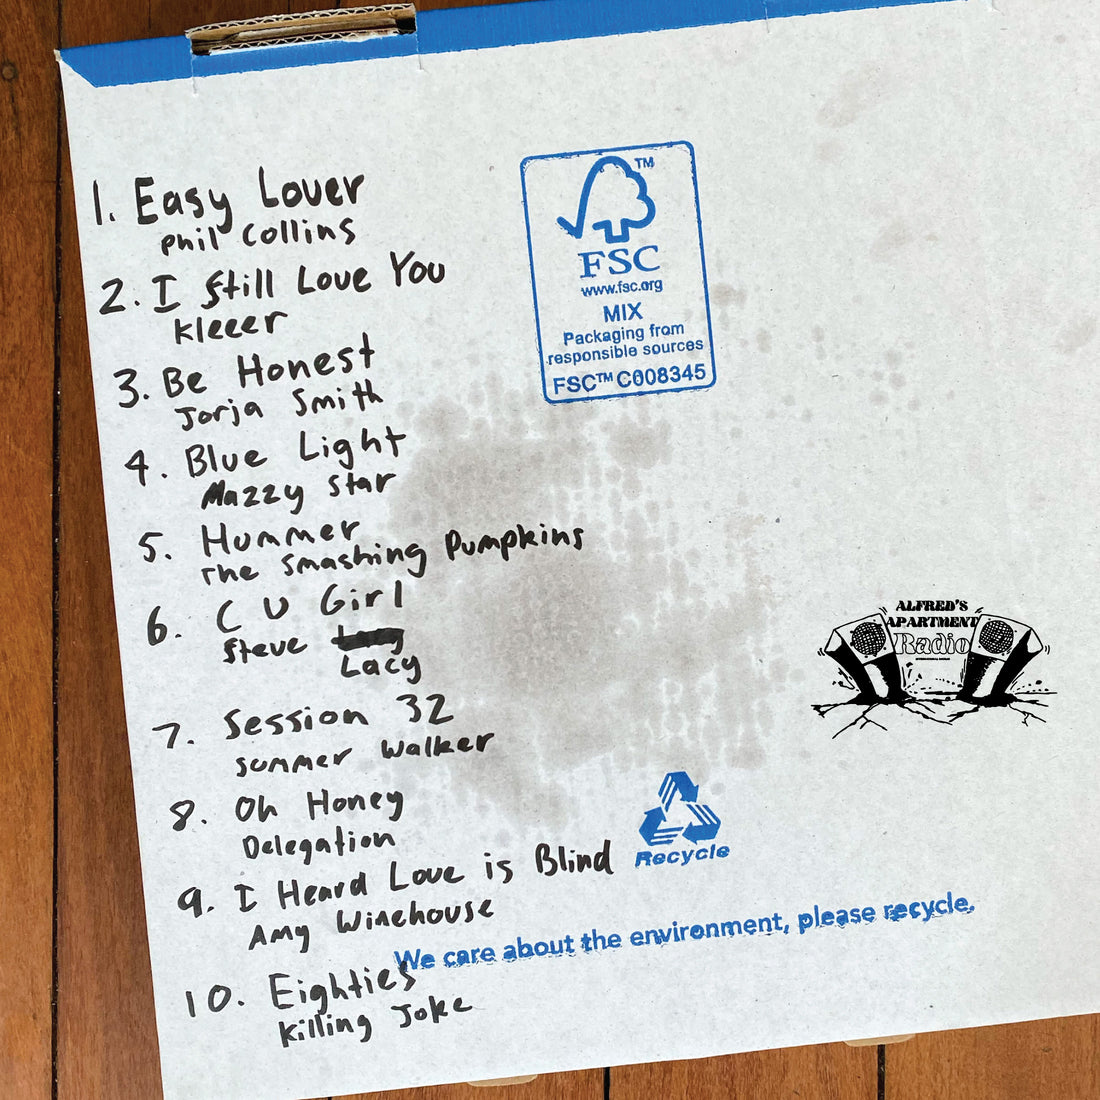 1. Easy Lover
Phil Collins
2. I Still Love You
Kleeer
3. Be Honest
Jorja Smith
4. Blue Light
Mazzy Star
5. Hummer
The Smashing Pumpkins
6. C U Girl
Steve
Lacy
7. Session 32
Summer Walker
8. Oh Honey
Delegation
9. I Heard Love is Blind
Amy Winehouse
10. Eighties
Killing Joke
TM
FSC
www.fsc.org
MIX
Packaging from
responsible sources
FSC™ C008345
ALFRED'S
APARTMENT
Radio
Recycle
We care about the environment, please recycle.